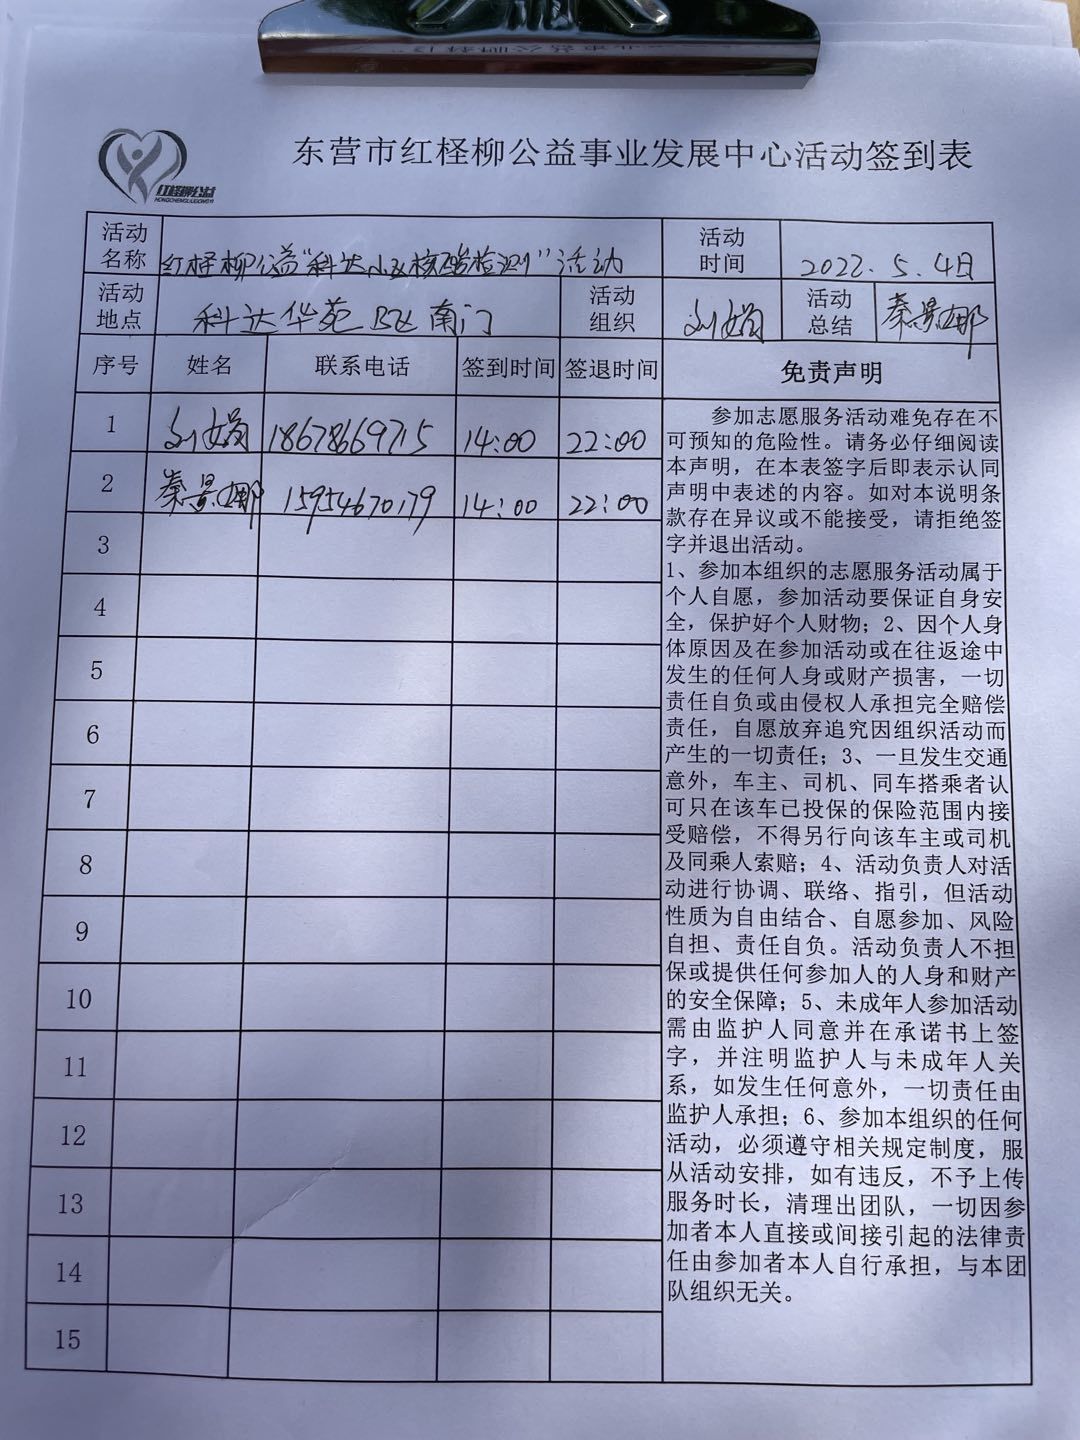 东营市红柽柳公益事业发展中心活动签到表
红柽柳公益
HONGCHENGLIUGONGYI
活动名称 红柽柳公益“科达小区核酸检测”活动 活动时间 2022.5.4日
活动地点 科达华苑B区南门 活动组织 刘娟 活动总结 秦景娜
序号 姓名 联系电话 签到时间 签退时间 免责声明
1 刘娟 18678669715 14:00 22:00
2 秦景娜 15954670179 14:00 22:00
3
4
5
6
7
8
9
10
11
12
13
14
15
参加志愿服务活动难免存在不
可预知的危险性。请务必仔细阅读
本声明，在本表签字后即表示认同
声明中表述的内容。如对本说明条
款存在异议或不能接受，请拒绝签
字并退出活动。
1、参加本组织的志愿服务活动属于
个人自愿，参加活动要保证自身安
全，保护好个人财物；2、因个人身
体原因及在参加活动或在往返途中
发生的任何人身或财产损害，一切
责任自负或由侵权人承担完全赔偿
责任，自愿放弃追究因组织活动而
产生的一切责任；3、一旦发生交通
意外，车主、司机、同车搭乘者认
可只在该车已投保的保险范围内接
受赔偿，不得另行向该车主或司机
及同乘人索赔；4、活动负责人对活
动进行协调、联络、指引，但活动
性质为自由结合、自愿参加、风险
自担、责任自负。活动负责人不担
保或提供任何参加人的人身和财产
的安全保障；5、未成年人参加活动
需由监护人同意并在承诺书上签
字，并注明监护人与未成年人关
系，如发生任何意外，一切责任由
监护人承担；6、参加本组织的任何
活动，必须遵守相关规定制度，服
从活动安排，如有违反，不予上传
服务时长，清理出团队，一切因参
加者本人直接或间接引起的法律责
任由参加者本人自行承担，与本团
队组织无关。